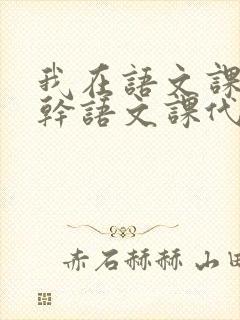 我在語文課
幹語文課代
赤石赫赫 山田